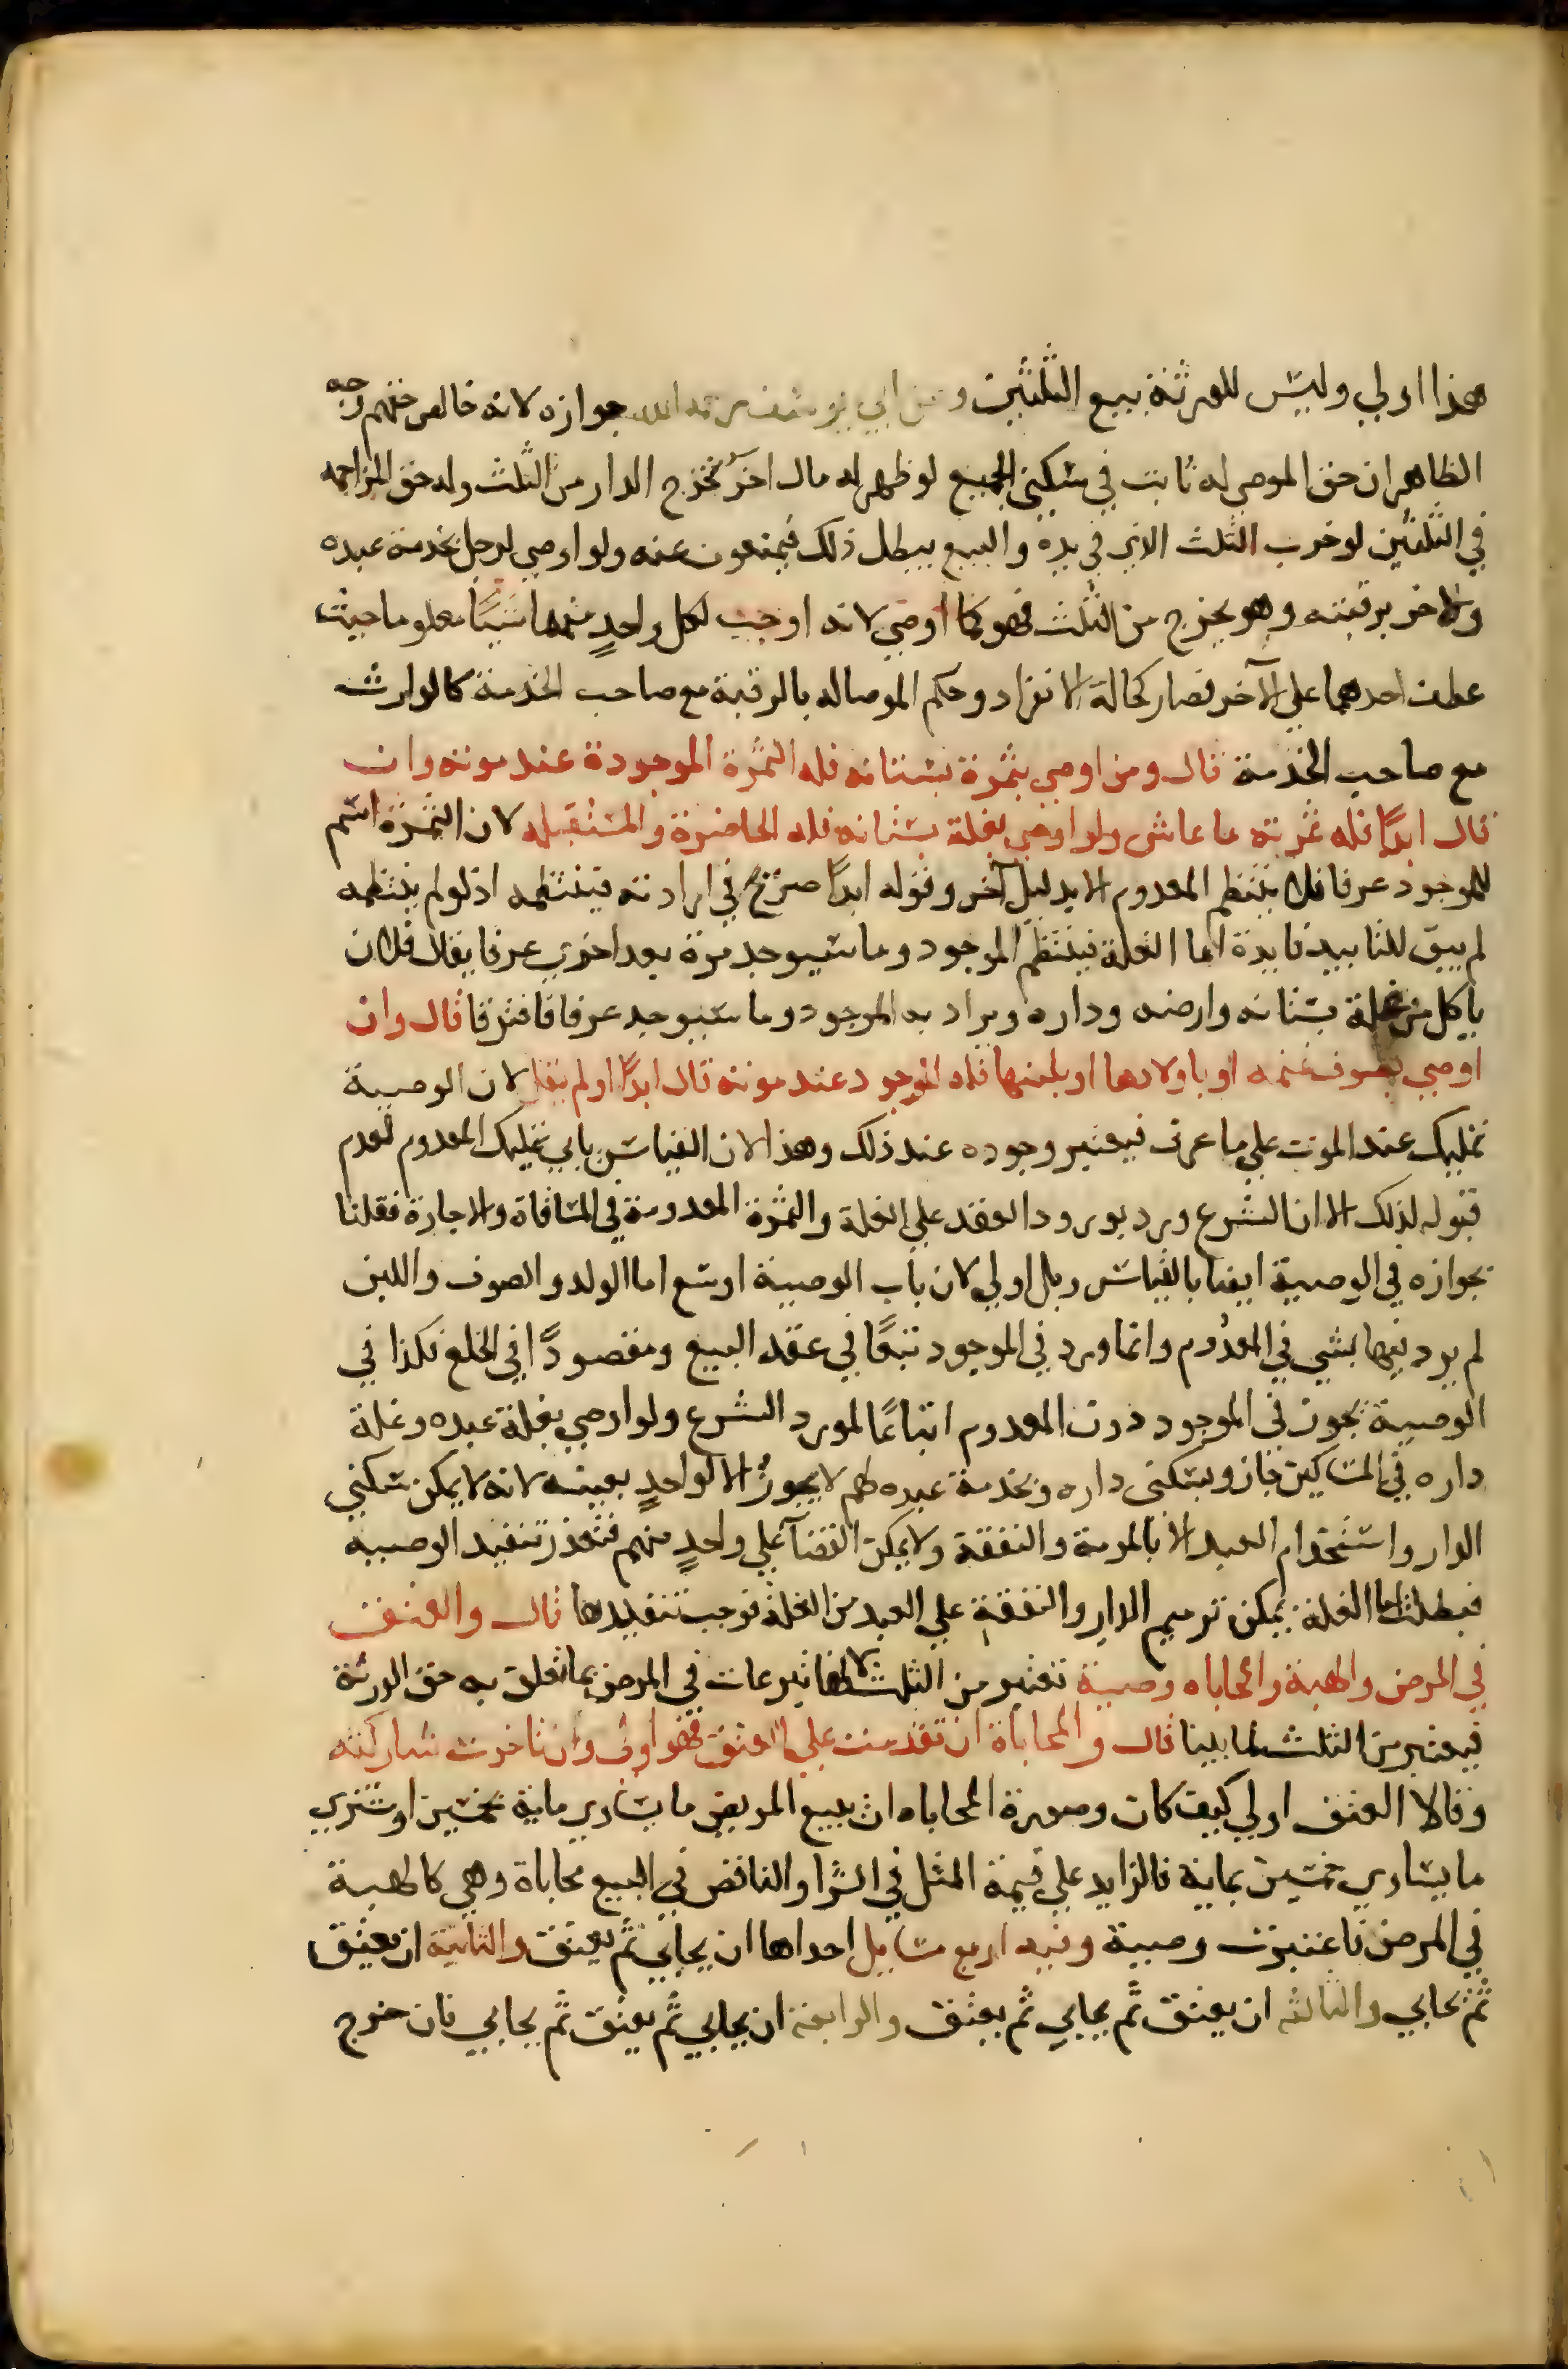 هذا اولي وليس للورثة بيع الثلثين وعن ابي يوسف رحمه الله جوازه لانه خالص حقهم وجه
الظاهر ان حق الموصى له ثابت في سكني الجميع لو ظهر له مال اخر تخرج الدار من الثلث وله حق المزاحمه
في الثلثين لو خرب الثلث الذي في يده والبيع يبطل ذلك فيمنعون عنه ولو اوصي لرجل بخدمة عبده
ولاخر برقبته وهو يخرج من الثلث فهو كما اوصي لانه اوجب لكل واحدٍ منهما شيئًا معلوما حيث
عطف احدهما علي الآخر فصار كحالة الانفراد وحكم الموصاله بالرقبة مع صاحب الخدمة كالوارث
مع صاحب الخدمة قال ومن اوصي بثمرة بستانه فله الثمرة الموجودة عند موته وان
قال ابدًا فله ثمرته ما عاش ولو اوصي بغلة بستانه فله الحاضرة والمستقبله لان الثمرة اسم
للموجود عرفا فلا ينتظم المعدوم الا بدليل آخر وقوله ابدًا صريح في ارادته فينتظمه اذ لو لم ينتظمه
لم يبق للتابيد فايدة اما الغلة فينتظم الموجود وما سيوجد مرة بعد اخري عرفا يقال فلان
ياكل من غلة بستانه وارضه وداره ويراد به الموجود وما سيوجد عرفا فافترقا قال وان
اوصي بصوف غنمه او باولادها او بلبنها فله الموجود عند موته قال ابدًا او لم يقل لان الوصية
تمليك عند الموت علي ما عرف فيعتبر وجوده عند ذلك وهذا لان القياس يابي تمليك المعدوم لعدم
قبوله لذلك الا ان الشرع ورد بورود العقد علي الغلة والثمرة المعدومة في المساقاة والاجارة فقلنا
بجوازه في الوصية ايضا بالقياس وبل اولي لان باب الوصية اوسع اما الولد والصوف واللبن
لم يرد فيها بشي في المعدوم وانما ورد في الموجود تبعًا في عقد البيع ومقصودًا في الخلع فكذا في
الوصية تجوز في الموجود دون المعدوم اتباعًا لمورد الشرع ولو اوصي بغلة عبده وغلة
داره في المساكين جاز وبسكنى داره وبخدمة عبده لهم لا يجوز الا لواحدٍ بعينه لانه لا يمكن سكني
الدار واستخدام العبد الا بالمرمة والنفقة ولا يمكن القضآ علي واحدٍ منهم فتعذر تنفيذ الوصيه
فبطلت اما الغلة يمكن ترميم الدار والنفقة علي العبد من الغلة فوجب تنفيذها قال والعتق
في المرض والهبة والمحاباه وصية تعتبر من الثلث لانها تبرعات في المرض بما تعلق به حق الورثة
فيعتبر من الثلث لما بينا قال والمحاباة ان تقدمت علي العتق فهو اولى وان تاخرت شاركته
وقالا العتق اولي كيف كان وصورة المحاباه ان يبيع المريض ما يساوي ماية بخمسين او يشتري
ما يساوي خمسين بماية فالزايد علي قيمة المثل في الشرا والناقص في البيع محاباة وهي كالهبة
في المرض فاعتبرت وصية وفيه اربع مسايل احداها ان يحابي ثم يعتق والثانية ان يعتق
ثم يحابي والثالثه ان يعتق ثم يحابي ثم يعتق والرابعة ان يحابي ثم يعتق ثم يحابي فان خرج